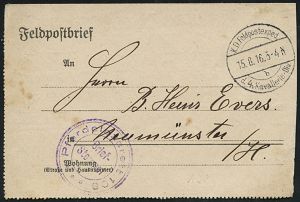 Feldpostbrief
K.D. Feldpostexped.
15.8.16.3-4N
b
d. 4. Kavallerie-Div.
An
Herrn
B. Heinz Evers.
in
Neumünster
i/H.
Pferde
Brief-
Wohnung
(Straße und Hausnummer)